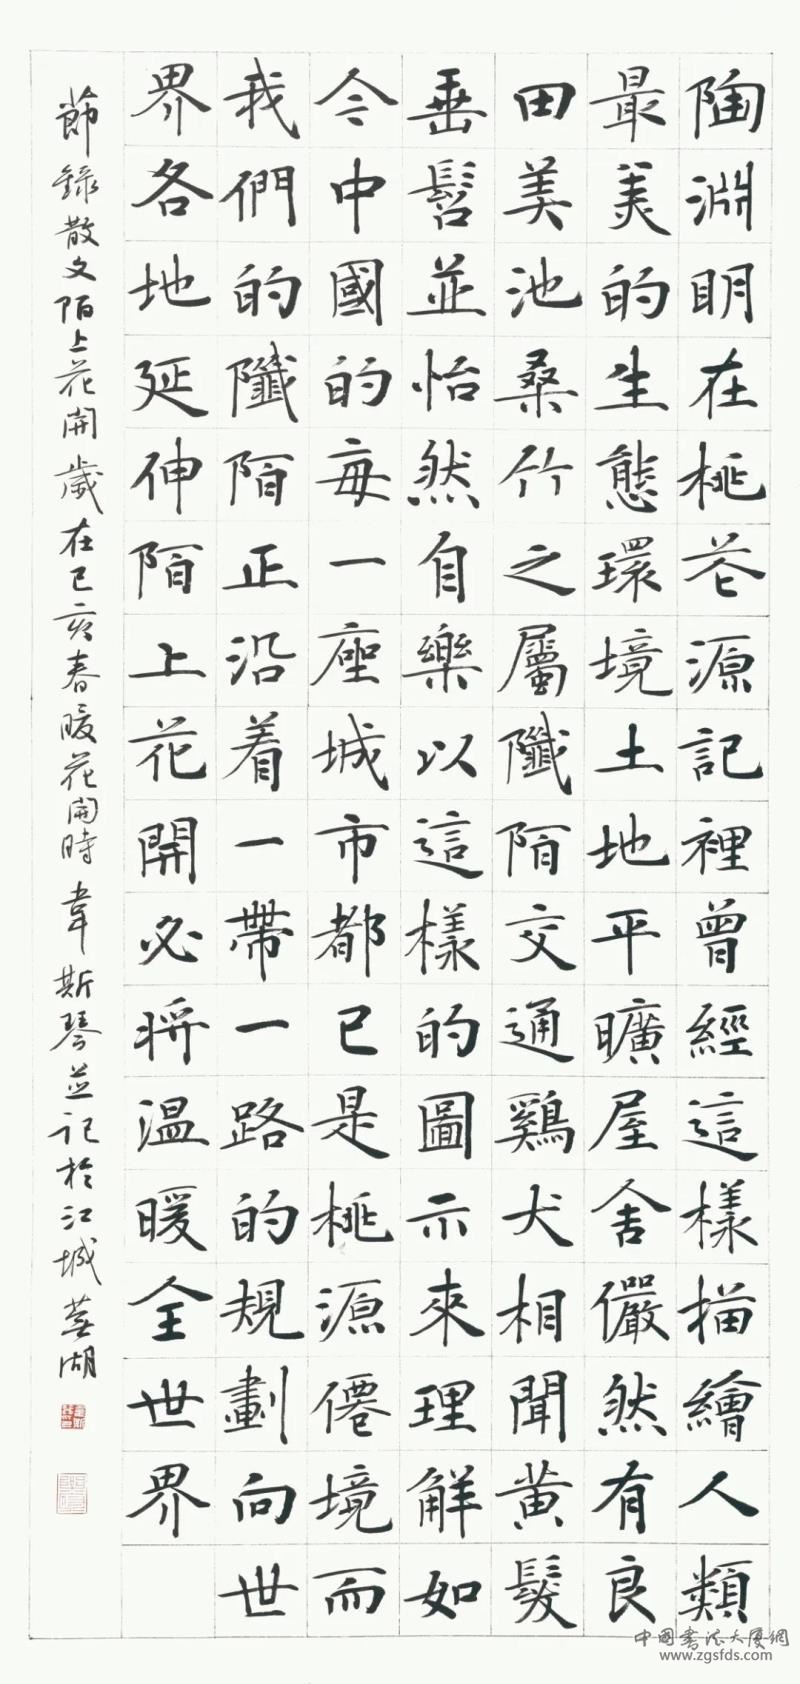 陶淵明在桃花源記裡曾經這樣描繪人類
最美的生態環境土地平曠屋舍儼然有良
田美池桑竹之屬阡陌交通鷄犬相聞黄髮
垂髫並怡然自樂以這樣的圖示來理解如
今中國的每一座城市都已是桃源僊境而
我們的阡陌正沿着一帶一路的規劃向世
界各地延伸陌上花開必將温暖全世界
節錄散文陌上花開歲在已亥春暖花開時韋斯琴並記於江城蕪湖
中國書法大厦網
www.zgsfds.com